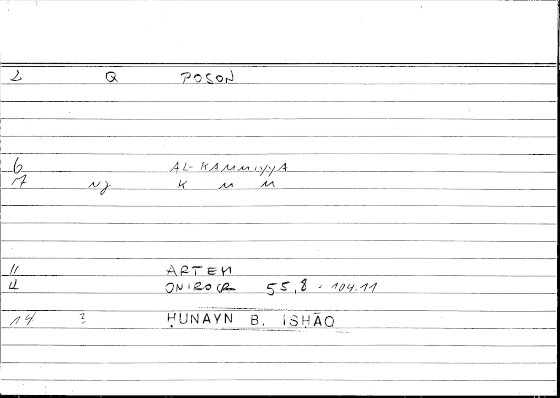 2 Q POSON
6 AL-KAMMIYYA
7 NJ K M M
11 ARTEM
12 ONIROCR 55,8 - 104.11
14 3 ḤUNAYN B. ISḤĀQ